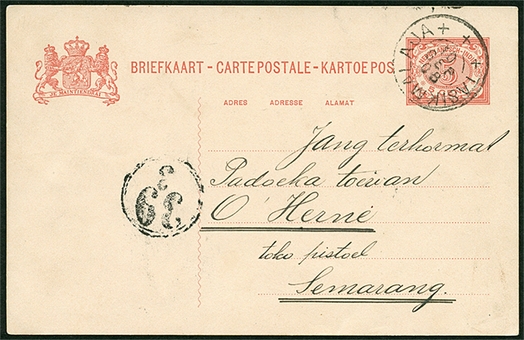 BRIEFKAART - CARTE POSTALE - KARTOE POS
JE MAINTIENDRAI
ADRES ADRESSE ALAMAT
TASIKMALAJA
Jang terhormat
Padoeka toewan
O'Herne
toko pistoel
Semarang.
3
39